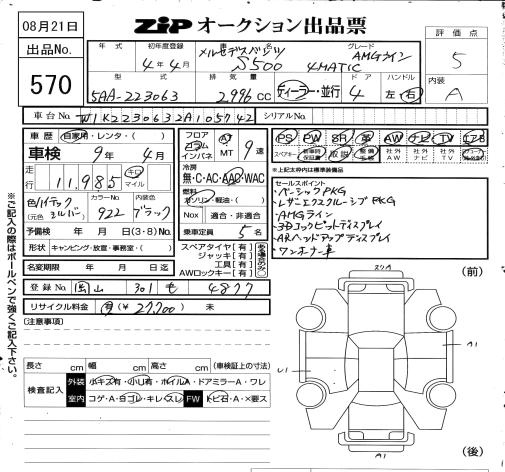 08月21日
ZiP オークション出品票
出品No. 570
年式 初年度登録 車名 グレード
4年4月 メルセデスベンツ S500 4MATIC AMGライン
評価点 5
型式 排気量 ドア ハンドル
5AA-223063 2996 cc ディーラー・並行 4 左・右
内装 A
車台No. W1K2230632A105742 シリアルNo.
車歴 自家用・レンタ・( )
車検 9年 4月
走行 11,985 キロ マイル
色 ハイテックシルバー (元色 ) カラーNo. 922 内装色 ブラック
予備検 年 月 日 (3・8) No.
形状 キャンピング・放置・事務室・( )
名変期限 年 月 日迄
登録No. 岡山 301 4877
リサイクル料金 有 (¥ 27,700 ) 未
フロア コラム インパネ AT MT 9速
冷房 無・C・AC・AAC・WAC
燃料 ガソリン・軽油・( )
Nox 適合・非適合
乗車定員 5名
スペアタイヤ [有]
ジャッキ [有]
工具 [有]
AWロックキー [有]
ある場合のみ○
PS PW SR 革 AW ナビ TV エアB
スペアキー 新車時保証書 取説 整備手帳 社外AW 社外ナビ 社外TV
※上記太枠内は標準装備品
セールスポイント
・ベーシックPKG
・レザーエクスクルーシブPKG
・AMGライン
・3Dコックピットディスプレイ
・ARヘッドアップディスプレイ
・ワンオーナー車
[注意事項]
長さ cm 幅 cm 高さ cm (車検証上の寸法)
検査記入 外装 小キズ有・小U有・ホイルA・ドアミラーA・ワレ
室内 コゲ・A・ヨゴレ・キレ・スレ FW トビ石・A・×要ス
※ご記入の際はボールペンで強くご記入下さい。
(前)
スリA
A1
U1
A1
(後)